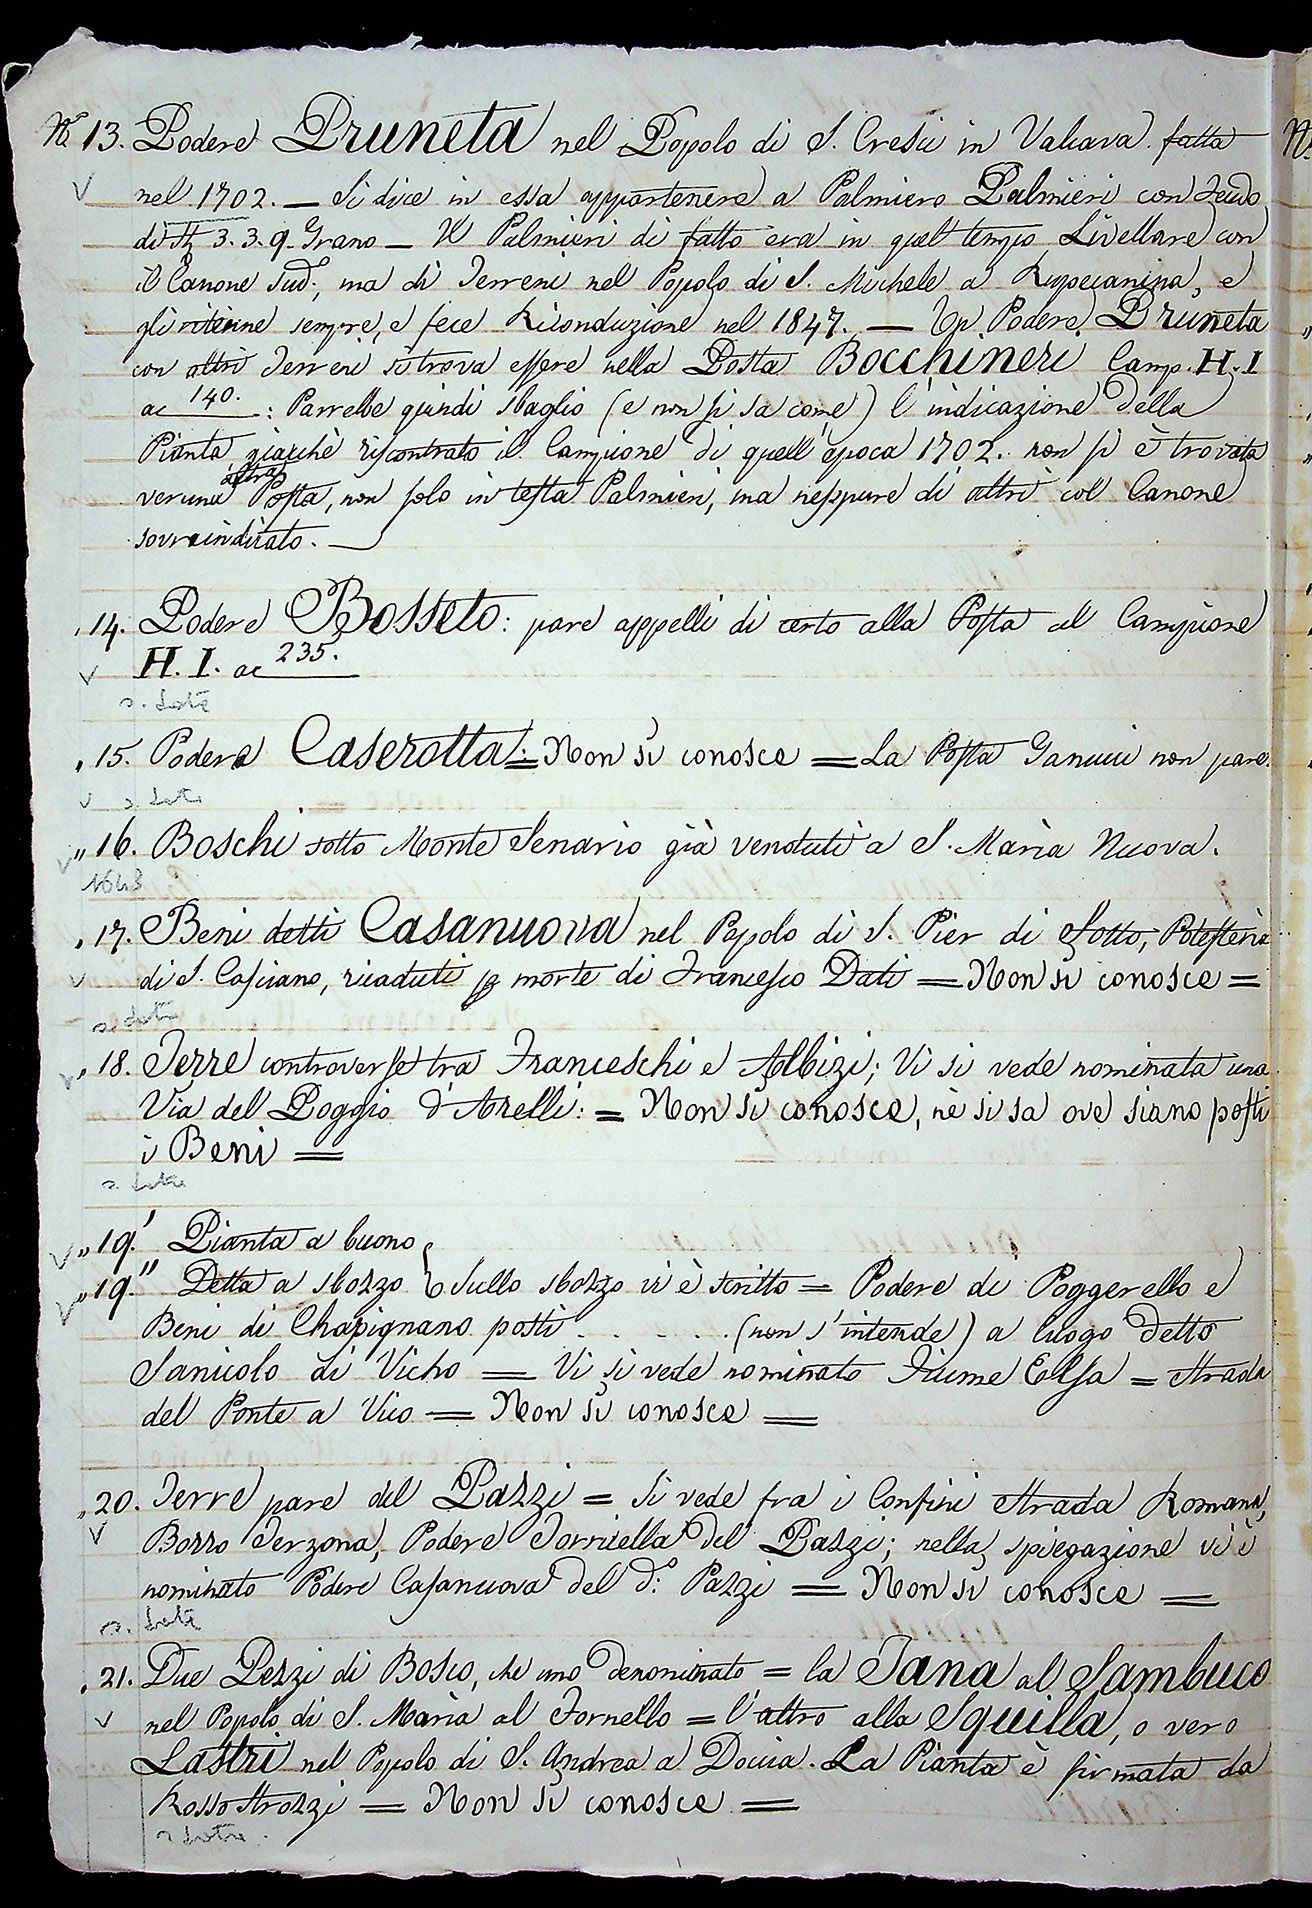 N.º 13. Podere Pruneta nel Popolo di S. Cresci in Valcava fatta
nel 1702. — Si dice in essa appartenere a Palmiero Palmieri con feudo
di 3. 3. 9. Grano — Il Palmieri di fatto era in quel tempo Livellare con
il Canone sud.º, ma di Terreni nel Popolo di S. Michele a Rupecanina, e
gli ritenne sempre, e fece Riconduzione nel 1847. — Un Podere Pruneta
con altri Terreni si trova essere nella Posta Bocchineri Camp. H. I
ac 140. : Parrebbe quindi sbaglio (e non si sa come) l'indicazione della
Pianta giacchè riscontrato il Campione di quell'epoca 1702. non si è trovata
veruna altra Posta, non solo in testa Palmieri, ma neppure di altri col Canone
sovraindicato. —
„ 14. Podere Bosseto: pare appelli di certo alla Posta al Campione
H. I. ac 235.
s. Data
„ 15. Podere Caserotta: = Non si conosce = La Posta Ganucci non pare.
s. Data
„ 16. Boschi sotto Monte Senario già venduti a S. Maria Nuova.
1643
„ 17. Beni detti Casanuova nel Popolo di S. Pier di Sotto, Potesteria
di S. Casciano, ricaduti p morte di Francesco Dati = Non si conosce =
s. data
„ 18. Terre controverse tra Franceschi e Albizi; Vi si vede nominata una
Via del Poggio d'Arelli: = Non si conosce, nè si sa ove siano posti
i Beni =
s. Data
„ 19.' Pianta a buono
„ 19." Detta a sbozzo { Sullo sbozzo vi è scritto = Podere di Poggerello e
Beni di Chapignano posti . . . . . . (non s'intende) a luogo detto
Sanicolo di Vicho = Vi si vede nominato Fiume Elsa = Strada
del Ponte a Vico = Non si conosce =
„ 20. Terre pare del Pazzi = Si vede fra i Confini Strada Romana,
Borro Terzona, Podere Torricella del Pazzi; nella spiegazione vi è
nominato Podere Casanuova del d.º Pazzi = Non si conosce =
s. Data
„ 21. Due Pezzi di Bosco, che uno denominato = la Tana al Sambuco
nel Popolo di S. Maria al Fornello = l'altro alla Squilla, o vero
Lastri nel Popolo di S. Andrea a Doccia. La Pianta è firmata da
Rosso Strozzi = Non si conosce =
s. Data.